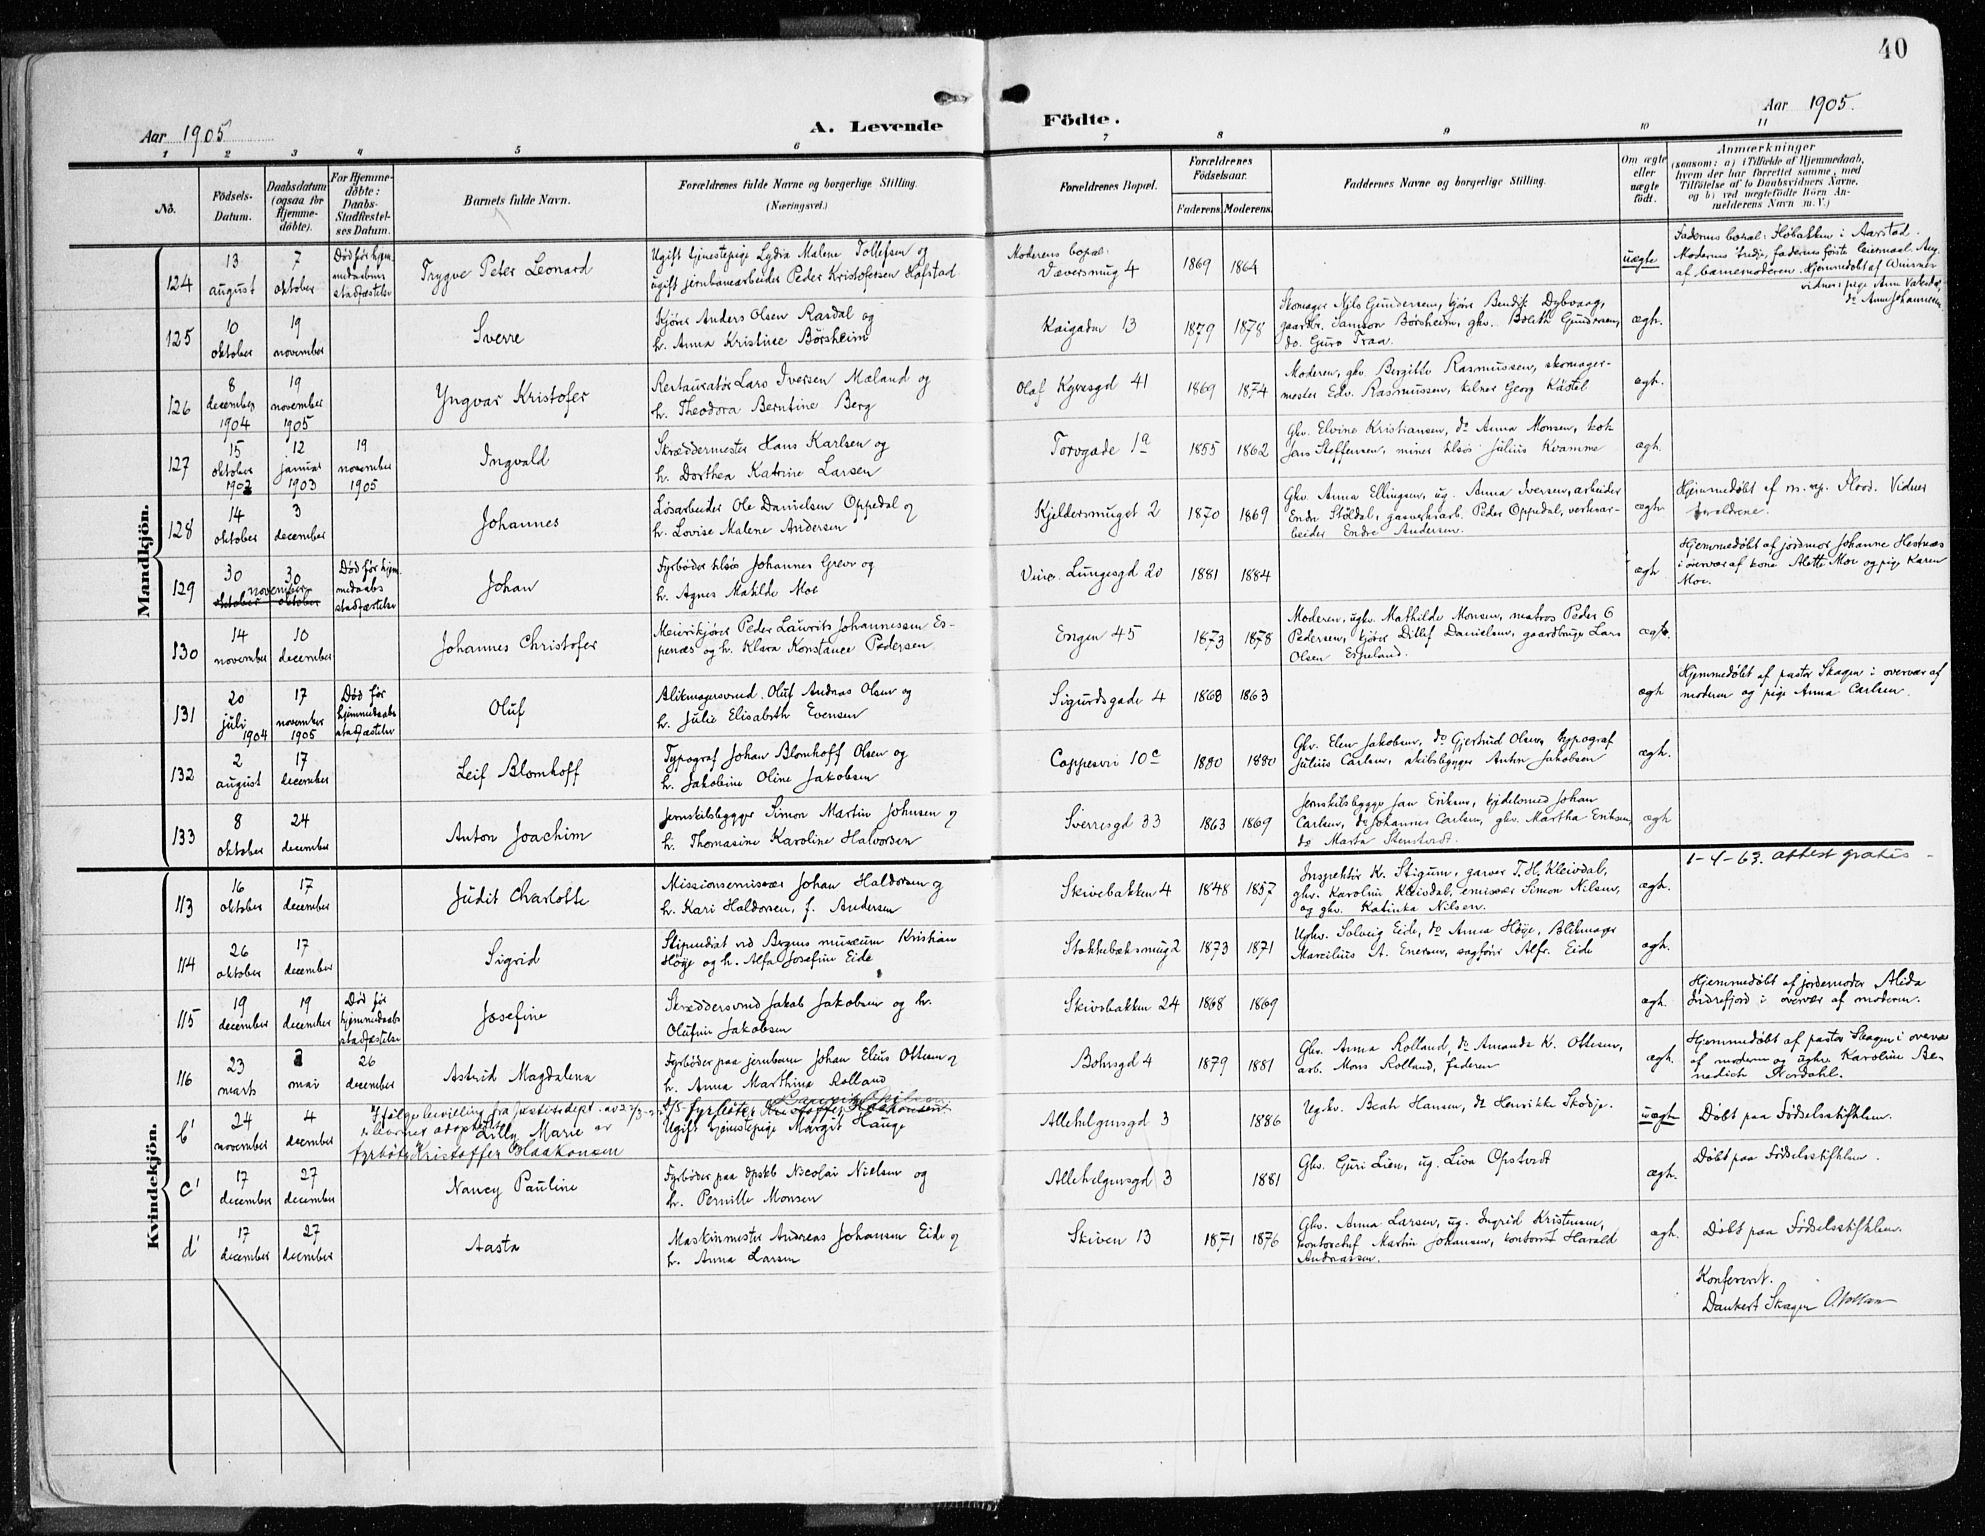 40
Aar 1905
A. Levende Födte.
Aar 1905.
1 2 3 4 5 6 7 8 9 10 11
No.
Födsels-Datum.
Daabsdatum (ogsaa for Hjemme-döbte).
For Hjemme-döbte: Daabs-Stadfæstel-ses Datum.
Barnets fulde Navn.
Forældrenes fulde Navne og borgerlige Stilling. (Næringsvei.)
Forældrenes Bopæl.
Forældrenes Födselsaar.
Faderens. Moderens.
Faddernes Navne og borgerlige Stilling.
Om ægte eller uægte födt.
Anmærkninger
(saasom: a) i Tilfælde af Hjemmedaab,
hvem der har forrettet samme, med
Tilföielse af to Daabsvidners Navne,
og b) ved uægtefödte Börn An-
melderens Navn m. V.)
Mandkjön.
124 13 august 7 oktober Død før hjemmedaabens stadfæstelse Trygve Peter Leonard
Ugift tjenestepige Lydia Malene Tollefsen og
ugift jernbanearbeider Peder Kristofersen Hofstad
Moderens bopæl: Væversmug 4 1869 1864 uægte
Faderens bopæl: Høbakken i Aarstad.
Moderens tredje, faderens første leiermaal. Ang.
af barnemoderen. Hjemmedøbt af
vidner: pige Anna
do Anna Johannesen
125 10 oktober 19 november Sverre
Kjører Anders Olsen Rasdal og
h. Anna Kristine Børsheim
Kaigaden 13 1879 1878
Skomager Nils Gundersen, kjører Bendik Dybvaag,
gaardbr. Samson Børsheim, ghv. Gundersen,
do. Guro Traa.
ægh.
126 8 december 1904 19 november 1905 Yngvar Kristofer
Restauratør Lars Iversen Mæland og
h. Theodora Berntine Berg
Olaf Kyrresgd 41 1869 1874
Moderen, ghv. Bergitte Rasmussen, skomager-
mester Edv. Rasmussen, kelner Georg Kästel
ægh.
127 15 oktober 1902 12 januar 1903 19 november 1905 Ingvald
Skræddermester Hans Karlsen og
h. Dorthea Katrine Larsen
Torvgade 1a 1855 1862
Ghv. Elvine Kristiansen, do Anna Monsen, kok
Jens Steffensen, minør tilsøs Julius Kvamme
ægh.
128 14 oktober 3 december Johannes
Løsarbeider Ole Danielsen Oppedal og
h. Lovise Malene Andersen
Kjeldersmuget 2 1870 1869
Ghv. Anna Ellingsen, ug. Anna Iversen, arbeider
Endre Stöldal, gasverksarb. Peder Oppedal, verksar-
beider Endre Andersen.
ægh.
Hjemmedøbt af Flood. Vidner
forældrene.
129 30 oktober 30 oktober november Død før hjemmedaabs stadfæstelse Johan
Fyrbøder tilsøs Johannes Greve og
h. Agnes Matilde Moe
Vinc. Lungesgd 20 1881 1884 ægh
Hjemmedøbt af jordmor Johanne Hestnæs
i overvær af kone Alette Moe og pige Karen
Moe.
130 14 november 10 december Johannes Christofer
Meierikjører Peder Laurits Johannessen Es-
penæs og h. Klara Konstance Pedersen
Engen 45 1873 1878
Moderen, ughv. Mathilde Monsen, matros Peder G
Pedersen, kjører Ditlef Danielsen, gaardbruger Lars
Olsen Espeland.
ægte.
131 20 juli 1904 17 november 1905 Død før hjemmedaabs stadfæstelse Oluf
Blikmagersvend Oluf Andreas Olsen og
h. Julie Elisabeth Evensen
Sigurdsgade 4 1863 ægh
Hjemmedøbt af pastor Skagen i overvær af
moderen og pige Anna Carlsen.
132 2 august 17 december Leif Blomhoff
Typograf Johan Blomhoff Olsen og
h. Jakobine Oline Jakobsen
Cappesvei 10c 1880 1880
Ghv. Elen Jakobsen, do Gjertrud Olsen, typograf
Julius Carlsen, skibsbygger Anton Jakobsen
ægh.
133 8 oktober 24 december Anton Joachim
Jernskibsbygger Simon Martin Johnsen og
h. Thomasine Karoline Halvorsen
Sverresgd 33 1863 1869
Jernskibsbygger Jan Eriksen, kjedelsmed Johan
Carlsen, do Johannes Carlsen, ghv. Martha Eriksen,
do Marta Stenstvedt.
ægh
Kvindekjön.
113 16 oktober 17 december Judit Charlotte
Missionsemissær Johan Haldorsen og
h. Kari Haldorsen, f. Andersen
Skivebakken 4 1848 1857
Inspektör K. Stigum, garver T. H. Kleivdal,
ghv. Karoline Kleivdal, emissær Simon Nilsen,
og ghv. Katinka Nilsen.
ægh.
1-4-63. attest gratis
114 26 oktober 17 december Sigrid
Stipendiat ved Bergens museum Kristian
Høye og h. Alfa Josefine Eide
Stokkebæksmug 2 1873 1871
Ughv. Solveig Eide, do Anna Höye, Blikmager
Marcilius A. Enersen, sagfører Alfr. Eide
ægh.
115 19 december 19 december Død før hjemmedaabs stadfæstelse Josefine
Skræddersvend Jakob Jakobsen og h.
Olufine Jakobsen
Skivebakken 24 1868 1869 ægh.
Hjemmedøbt af jordemoder Alida
Indrefjord i overvær af moderen.
116 23 marts 2 mai 26 december Astrid Magdalena
Fyrbøder paa jernbanen Johan Elias Ottesen og
h. Anna Marthine Rolland
Bohrsgd 4 1879 1881
Ghv. Anna Rolland, do Amanda K. Ottesen,
arb. Mons Rolland, faderen
ægh.
Hjemmedøbt af pastor Skagen i overvær
af moderen og ughv. Karoline Be-
nedich Nordahl.
b' 24 november 4 december
Ifølge bevilling fra Justitsdept. av 2/3-
er barnet adoptert av
Lilly Marie
fyrbøter Kristoffer Haakonsen
fyrbøter Kristoffer Haakonsen
Ugift tjenestepige Margit Hauge
Allehelgensgd 3 1886
Ughv. Beate Hansen, do Henrikke Skodje.
uægh
Døbt paa Fødselsstiftelsen.
c' 17 december 27 december Nancy Pauline
Fyrbøder paa dpskb Nicolai Nielsen og
h. Pernille Monsen
Allehelgensgd 3 1881
Ghv. Guri Lien, ug. Lina Opstvedt
ægh.
Døbt paa Fødselsstiftelsen.
d' 17 december 27 december Aasta
Maskinmester Andreas Johansen Eide og
h. Anna Larsen
Skiven 13 1871 1876
Ghv. Anna Larsen, ug. Ingrid Kristensen,
kontorchef Martin Johansen, kontorist Harald
Andreassen.
ægh.
Døbt paa Fødselsstiftelsen.
Konfereret.
Dankert Skagen